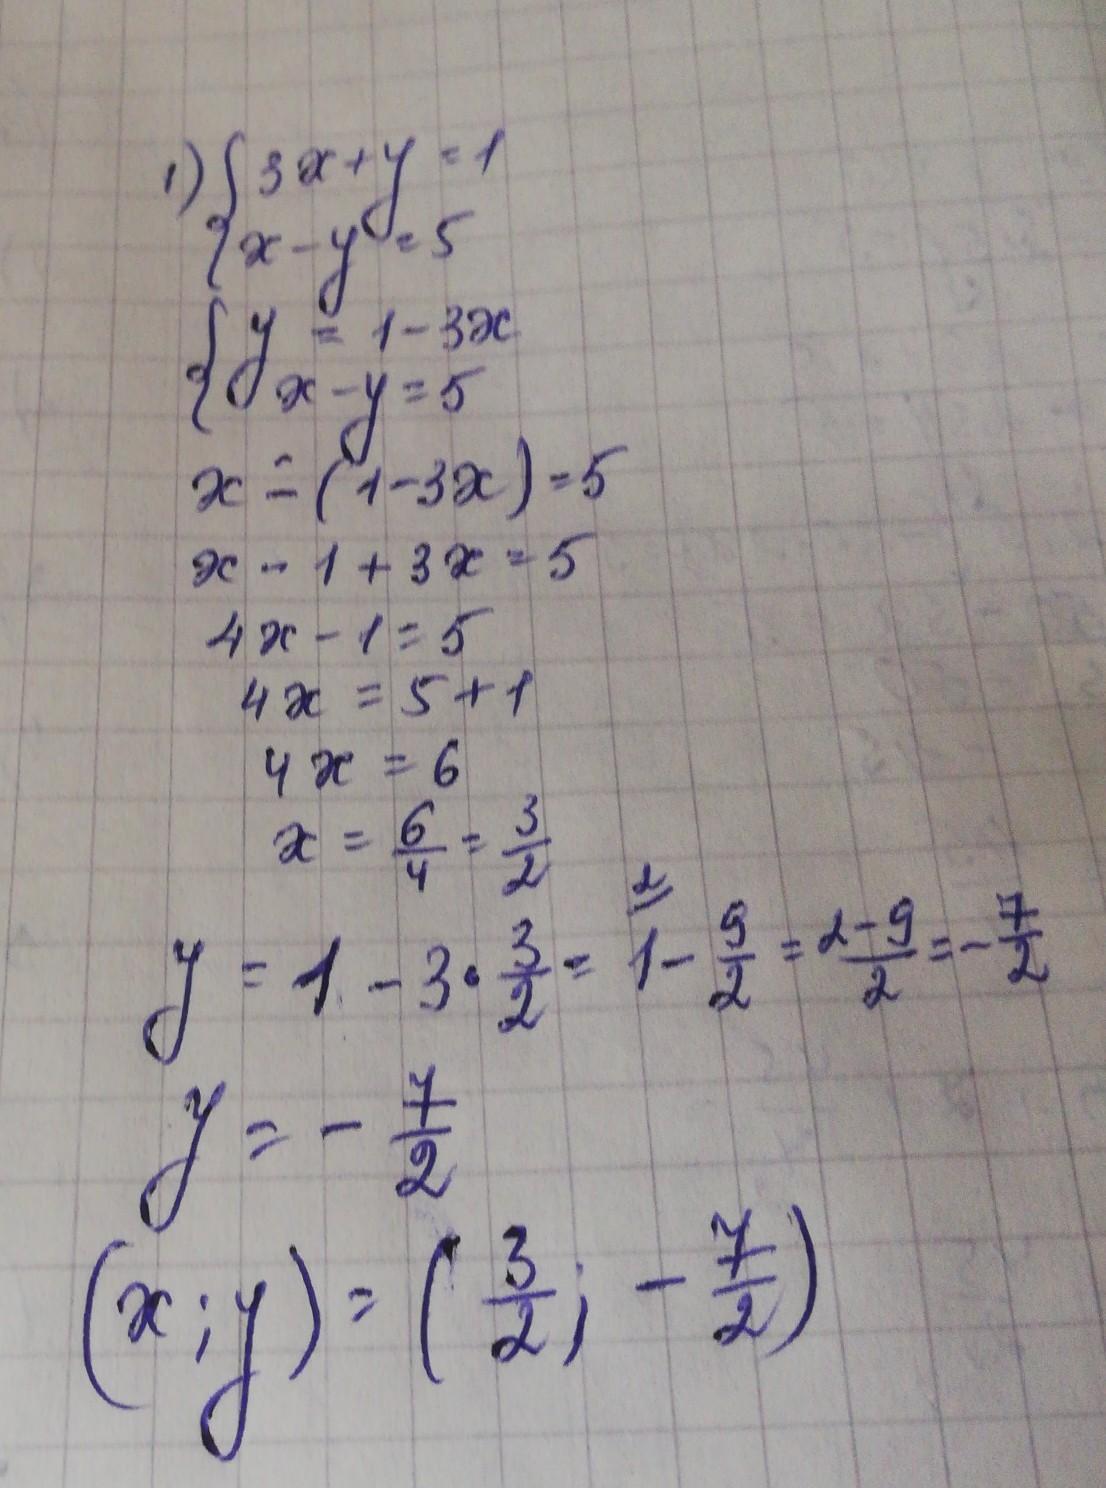 1) { 3x + y = 1
x - y = 5
{ y = 1 - 3x
x - y = 5
x - (1 - 3x) = 5
x - 1 + 3x = 5
4x - 1 = 5
4x = 5 + 1
4x = 6
x = 6/4 = 3/2
y = 1 - 3 · 3/2 = 1 - 9/2 = (2-9)/2 = - 7/2
y = - 7/2
(x; y) = (3/2; - 7/2)